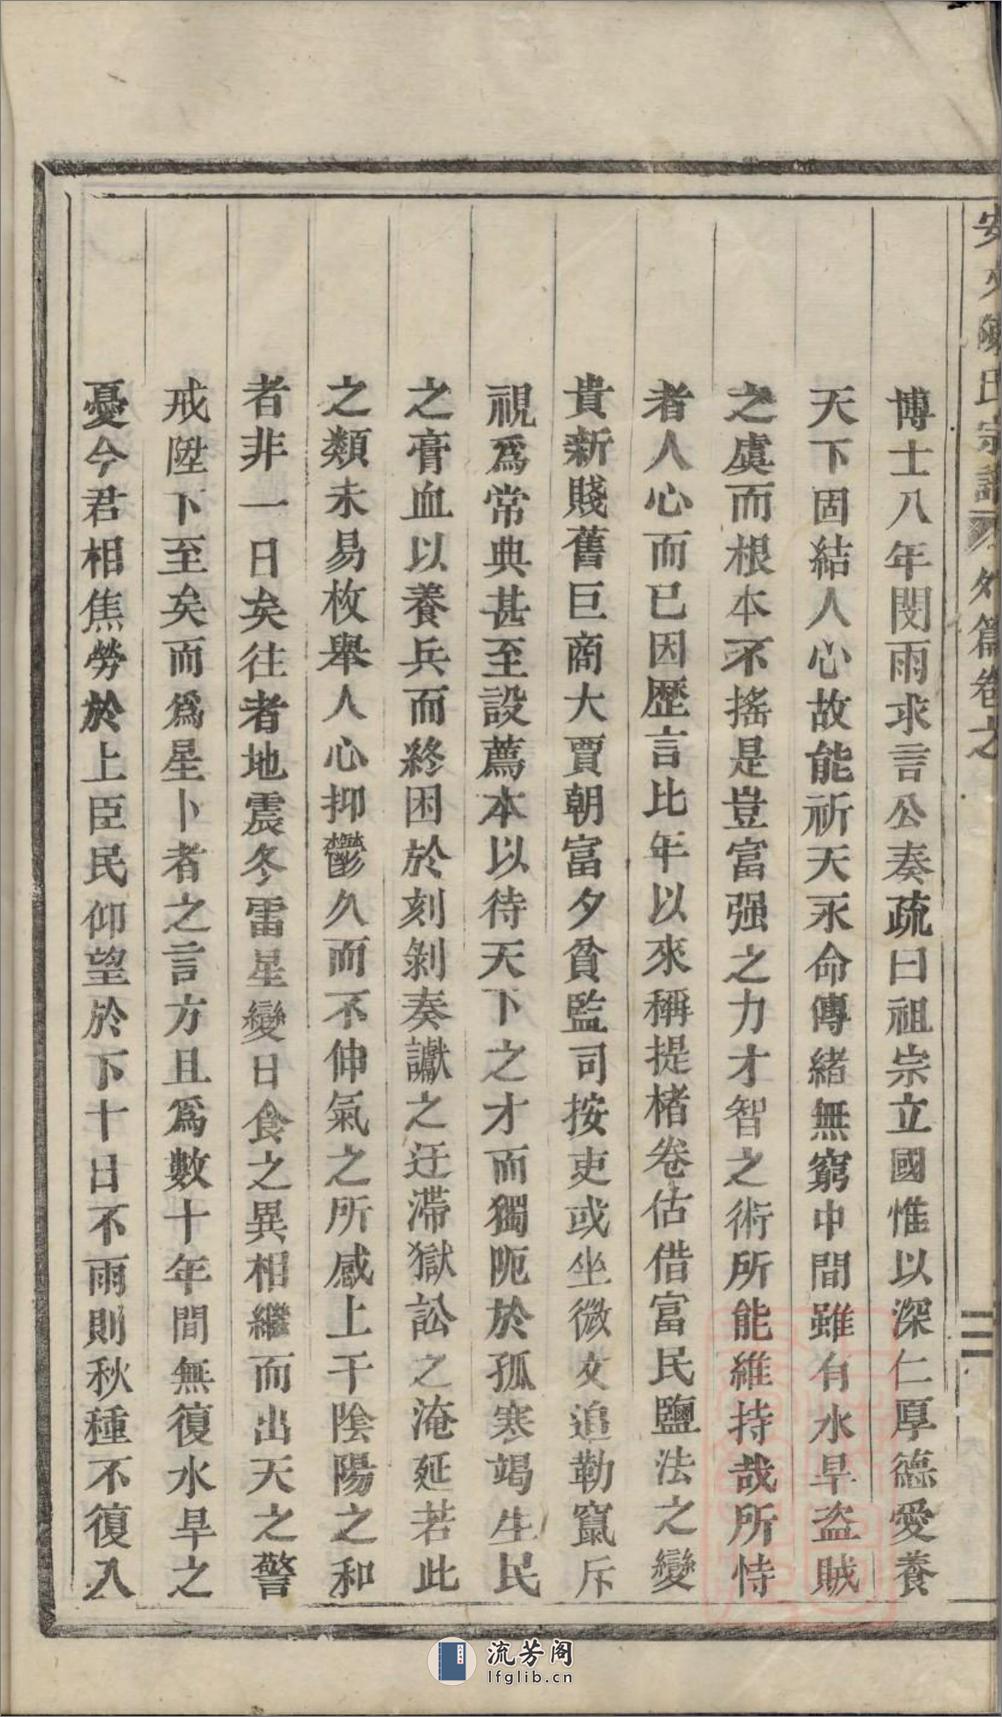 氏宗譜 外篇卷之
博士八年閔雨求言公奏疏曰祖宗立國惟以深仁厚德愛養
天下固結人心故能祈天永命傳緒無窮中間雖有水旱盜賊
之虞而根本不搖是豈富强之力才智之術所能維持哉所恃
者人心而已因歷言比年以來稱提楮卷估借富民鹽法之變
貴新賤舊巨商大賈朝富夕貧監司按吏或坐微文追勒竄斥
視爲常典甚至設薦本以待天下之才而獨阨於孤寒竭生民
之膏血以養兵而終困於刻剝奏讞之迂滯獄訟之淹延若此
之類未易枚舉人心抑鬱久而不伸氣之所感上干陰陽之和
者非一日矣往者地震冬雷星變日食之異相繼而出天之警
戒陞下至矣而爲星卜者之言方且爲數十年間無復水旱之
憂今君相焦勞於上臣民仰望於下十日不雨則秋種不復入
流芳阁
lfglib.cn